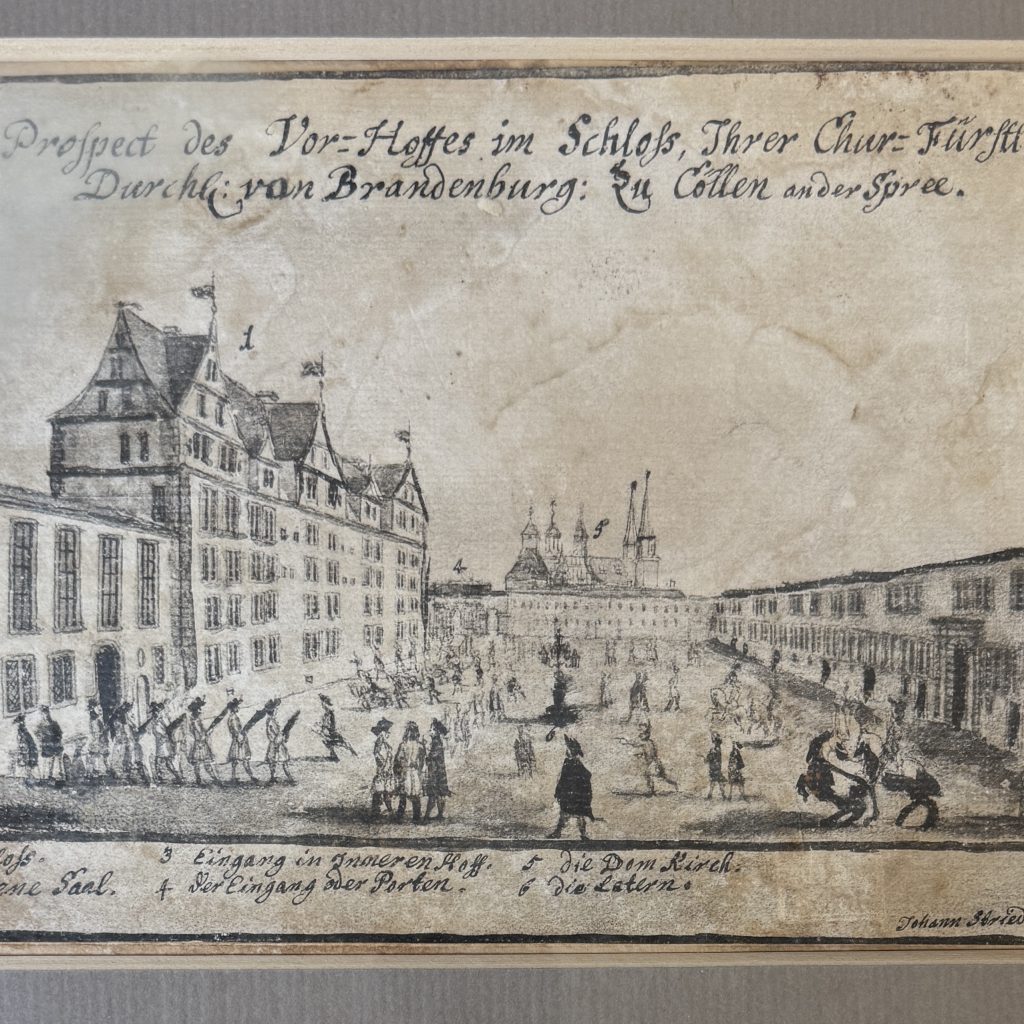 Prospect des Vor=Hoffes im Schloss, Ihrer Chur=Fürstl
Durchl: von Brandenburg: Zu Cöllen an der Spree.
1
4
5
3 Eingang in Inneren Hoff. 5 die Dom Kirch.
Saal. 4 Der Eingang oder Porten. 6 die Latern.
Johann